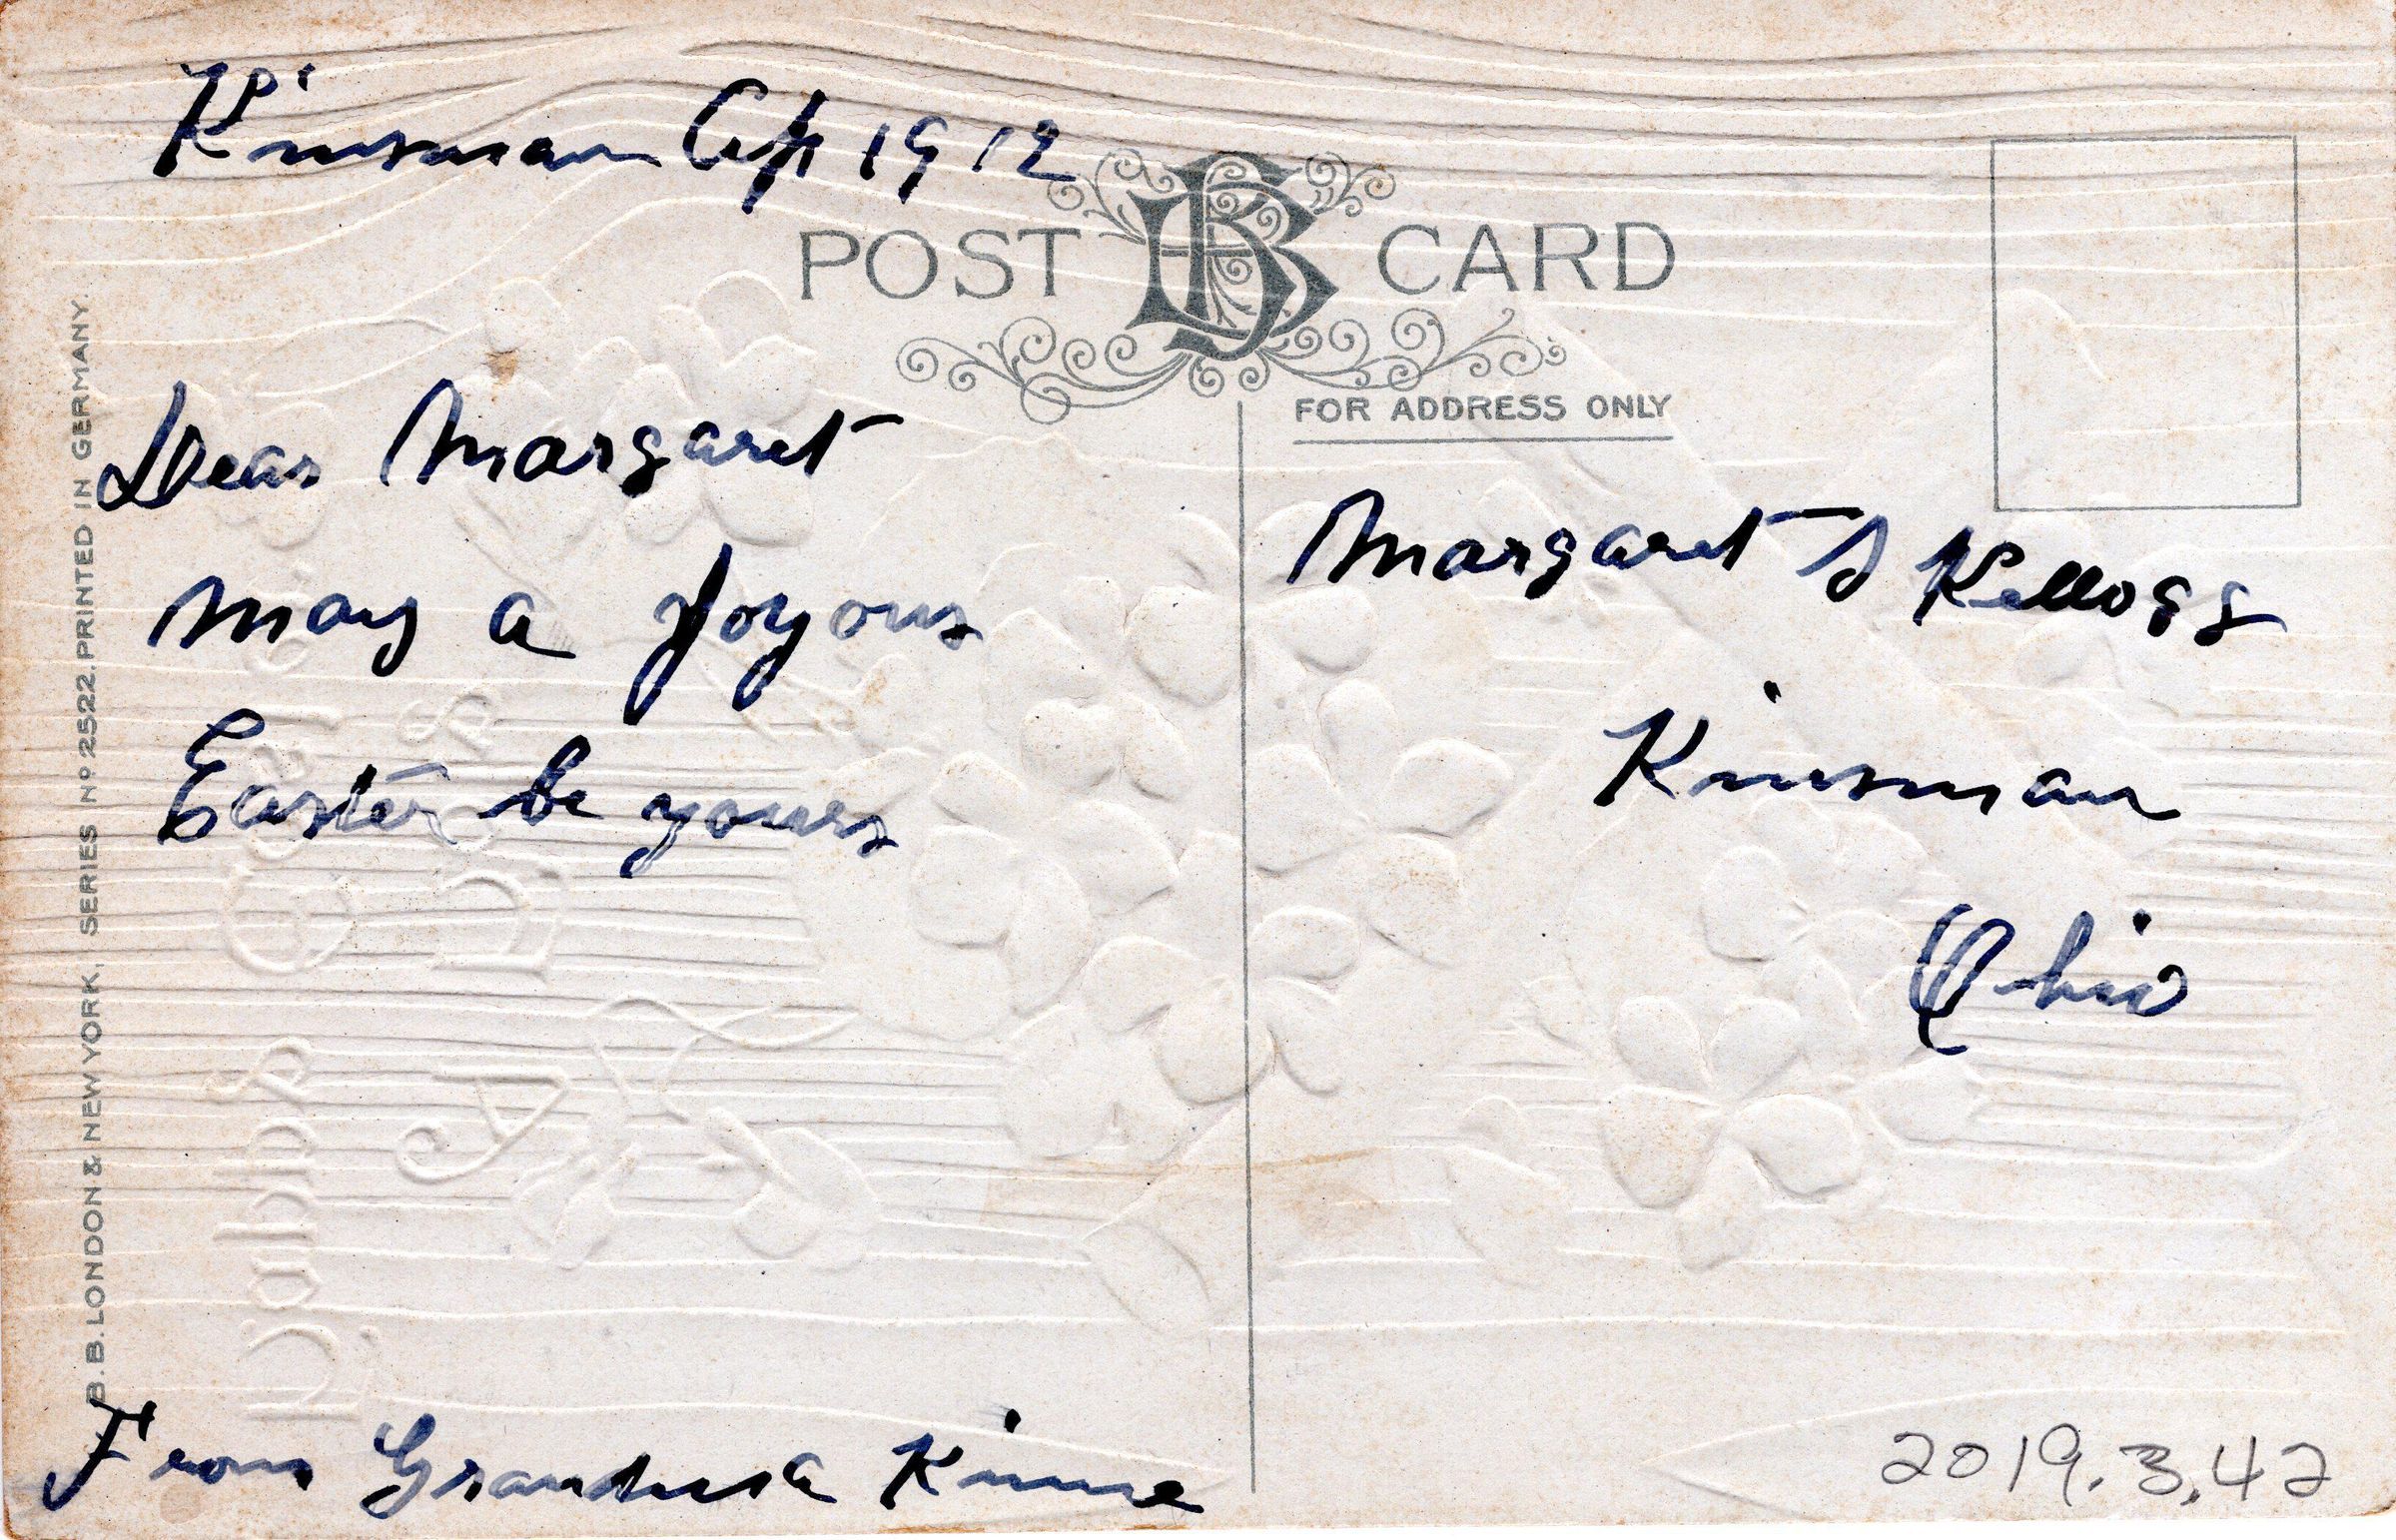 Kinsman Apr 1912
POST CARD
FOR ADDRESS ONLY
Dear Margaret
may a Joyous
Easter be yours
From Grandma Kinne
Margaret S Kellogg
Kinsman
Ohio
B.B. LONDON & NEW YORK, SERIES Nº 2522. PRINTED IN GERMANY.
2019.3.42